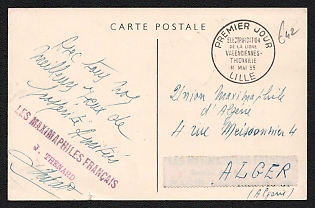 CARTE POSTALE
PREMIER JOUR
ELECTRIFICATION
DE LA LIGNE
VALENCIENNES-
THIONVILLE
MAI 55
LILLE
Avec tous nos
meilleurs vœux de
prospérité
LES MAXIMAPHILES FRANÇAIS
THENARD
Union Maximaphile
d'Algérie
4 rue Meissonnier 4
ALGER
(Algérie)